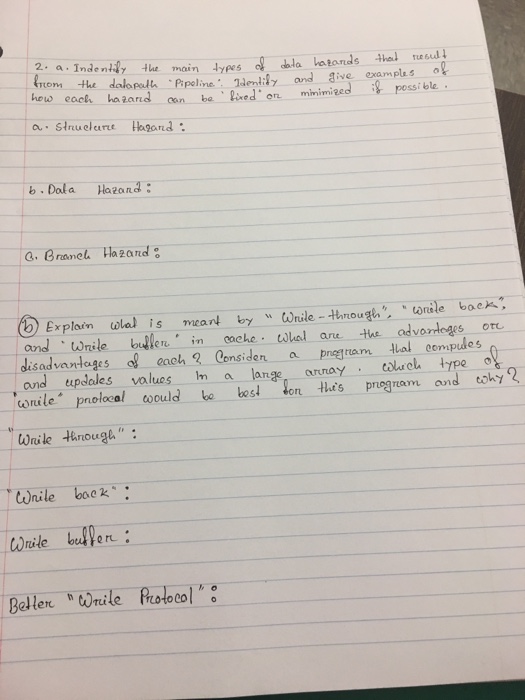 2. a. Indentify the main types of data hazards that result
from the datapath 'Pipeline'. Identify and give examples of
how each hazard can be 'fixed' or minimized if possible.
a. Structure Hazard :
b. Data Hazard :
C. Branch Hazard :
(b) Explain what is meant by "Write-through", "write back",
and "Write buffer" in cache. What are the advantages or
disadvantages of each? Consider a program that computes
and updates values in a large array. Which type of
"write" protocol would be best for this program and why?
"Write through" :
"Write back" :
Write buffer :
Better "Write Protocol" :